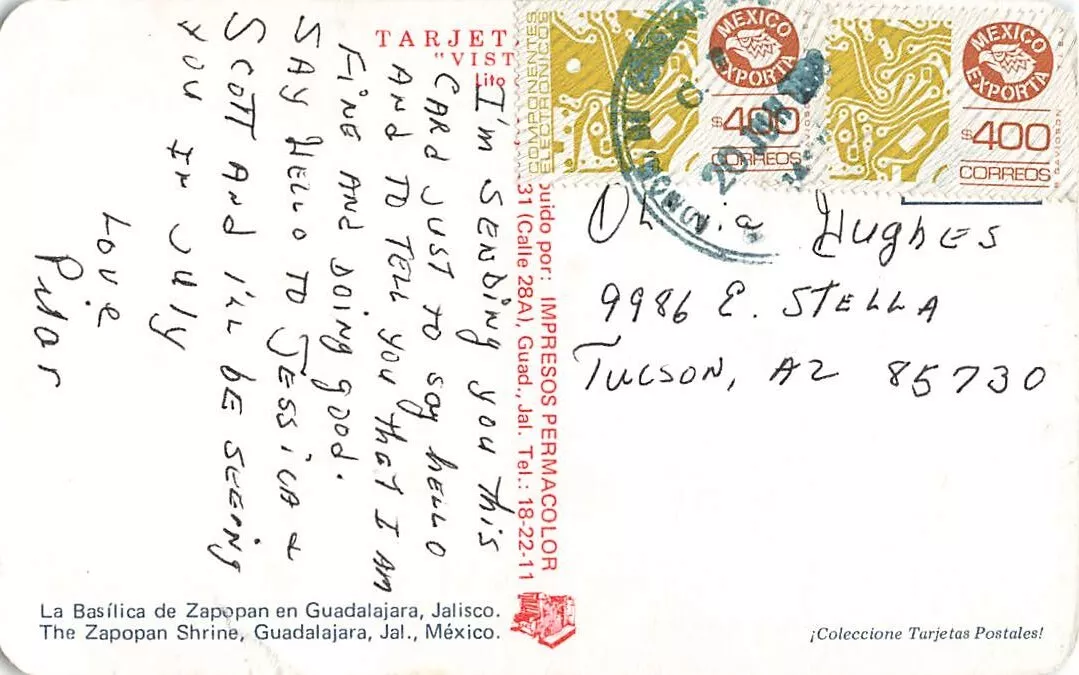 I'm SENDiNg you This
CARd JUST TO SAy hELLO
AND TO TELL you ThAT I AM
FiNE ANd DOiNg good.
SAy HELLO TO JESSiCA &
SCOTT ANd I'LL bE SEEiNg
you IN JULy
LovE
PiLAr
TARJET
"VIST
Lito
buido por: IMPRESOS PERMACOLOR
31 (Calle 28A), Guad., Jal. Tel.: 18-22-11
COMPONENTES
ELECTRONICOS
MEXICO
EXPORTA
$400
CORREOS
MEXICO
EXPORTA
$400
CORREOS
20 JUN
Hughes
9986 E. STELLA
TUCSON, AZ 85730
La Basílica de Zapopan en Guadalajara, Jalisco.
The Zapopan Shrine, Guadalajara, Jal., México.
¡Coleccione Tarjetas Postales!